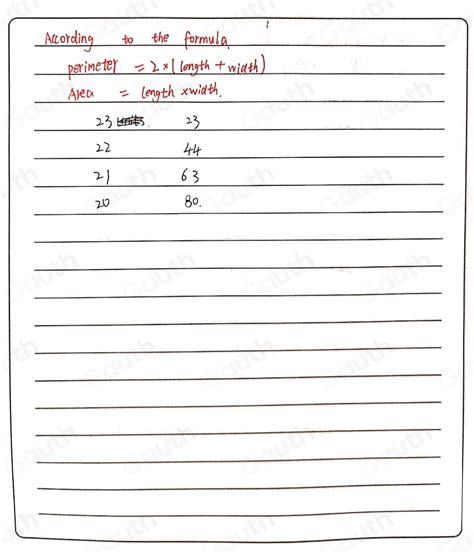 According to the formula.
perimeter = 2 × (length + width)
Area = length × width.
23 23
22 44
21 63
20 80.